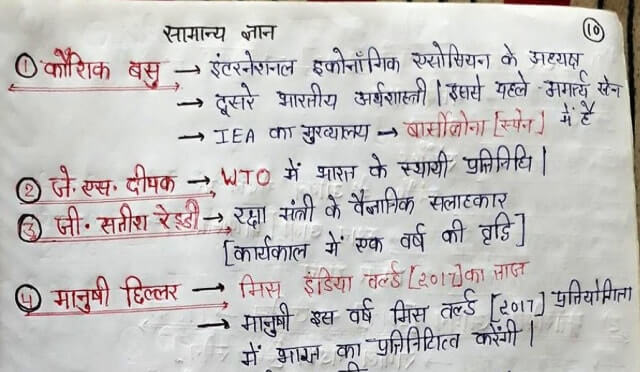 सामान्य ज्ञान
10
① कौशिक बसु → इंटरनेशनल इकोनॉमिक एसोसियन के अध्यक्ष
→ दूसरे भारतीय अर्थशास्त्री | इससे पहले अमर्त्य सेन में है
→ IEA का मुख्यालय → बार्सीलोना [स्पेन]
② जे. एस. दीपक → WTO में भारत के स्थायी प्रतिनिधि |
③ जी. सतीश रेड्डी → रक्षा मंत्री के वैज्ञानिक सलाहकार
[कार्यकाल में एक वर्ष की वृद्धि]
④ मानुषी छिल्लर → मिस इंडिया वर्ल्ड [2017] का ताज
→ मानुषी इस वर्ष मिस वर्ल्ड [2017] प्रतियोगिता
में भारत का प्रतिनिधित्व करेंगी |